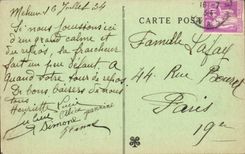 Mehun 16 Juillet 34
Si nous jouissons ici
d'un grand calme et
du repos, la fraîcheur
fait un peu défaut. A
quand votre tour de repos
De bons baisers de nous
Henriette Lucie
Simone
CARTE POST
Famille Lafay
44 Rue
Paris
19e